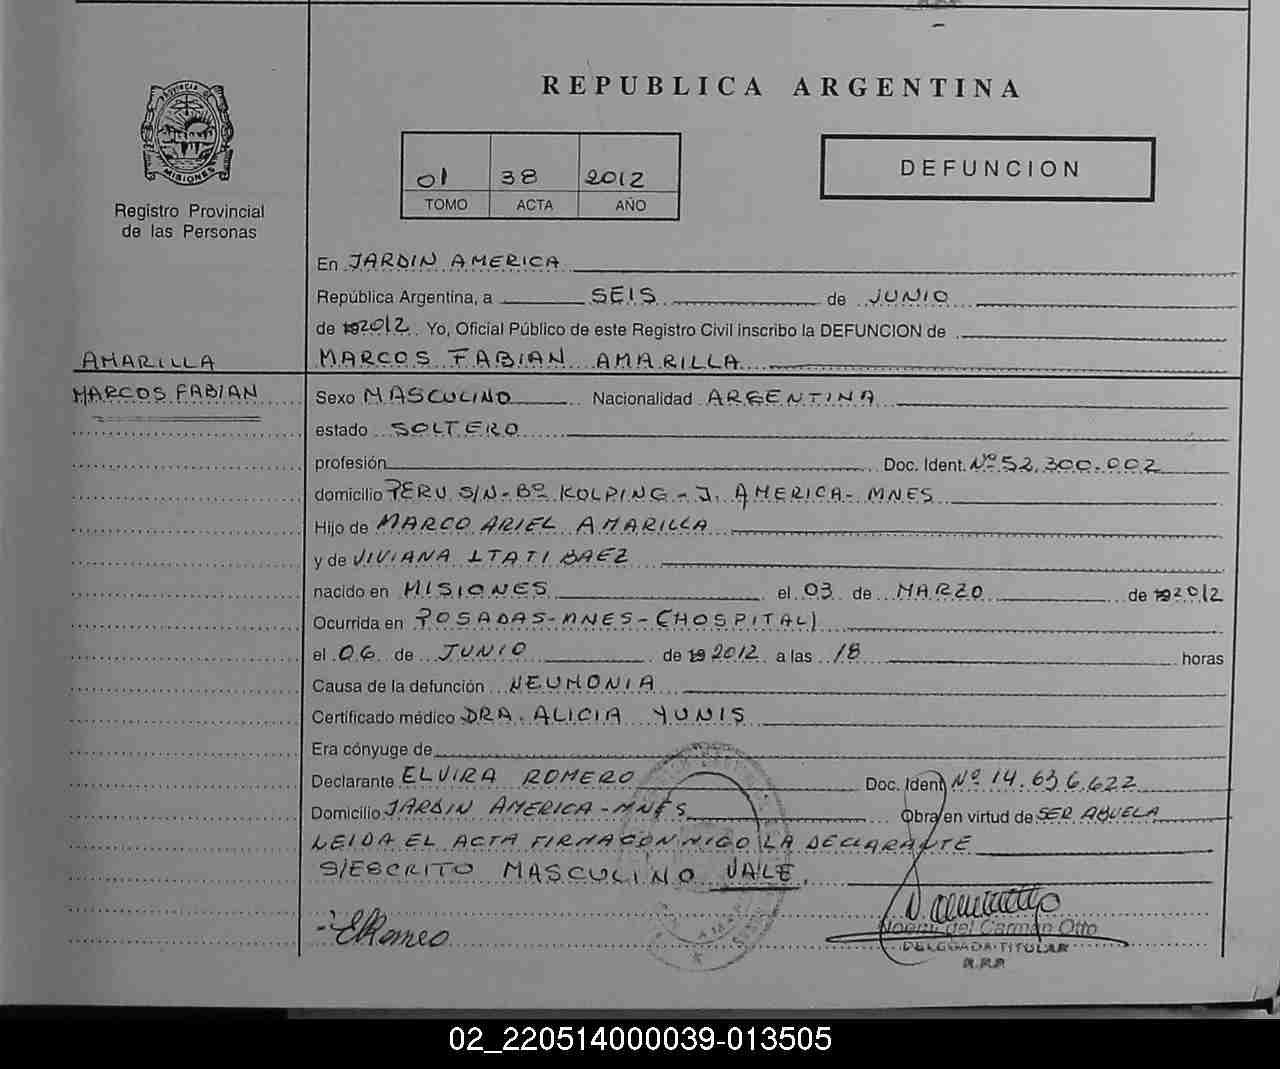 REPUBLICA ARGENTINA
PROVINCIA DE
MISIONES
Registro Provincial
de las Personas
01 38 2012
TOMO ACTA AÑO
DEFUNCION
En JARDIN AMERICA
República Argentina, a SEIS de JUNIO
de 192012 Yo, Oficial Público de este Registro Civil inscribo la DEFUNCION de
AMARILLA
MARCOS FABIAN AMARILLA
MARCOS FABIAN
Sexo MASCULINO Nacionalidad ARGENTINA
estado SOLTERO
profesión Doc. Ident. Nº 52.300.002
domicilio PERU S/N-Bº KOLPING-J. AMERICA-MNES
Hijo de MARCO ARIEL AMARILLA
y de VIVIANA ITATI BAEZ
nacido en MISIONES el 03 de MARZO de 192012
Ocurrida en POSADAS-MNES-(HOSPITAL)
el 06 de JUNIO de 19 2012 a las 18 horas
Causa de la defunción NEUMONIA
Certificado médico DRA. ALICIA YUNIS
Era cónyuge de
Declarante ELVIRA ROMERO Doc. Ident Nº 14.636.622
Domicilio JARDIN AMERICA-MNES Obra en virtud de SER ABUELA
LEIDA EL ACTA FIRMA CONMIGO LA DECLARANTE
S/ESCRITO MASCULINO VALE.
ERomeo
Noemi del Carmen Otto
DELEGADA TITULAR
R.P.P.
02_220514000039-013505